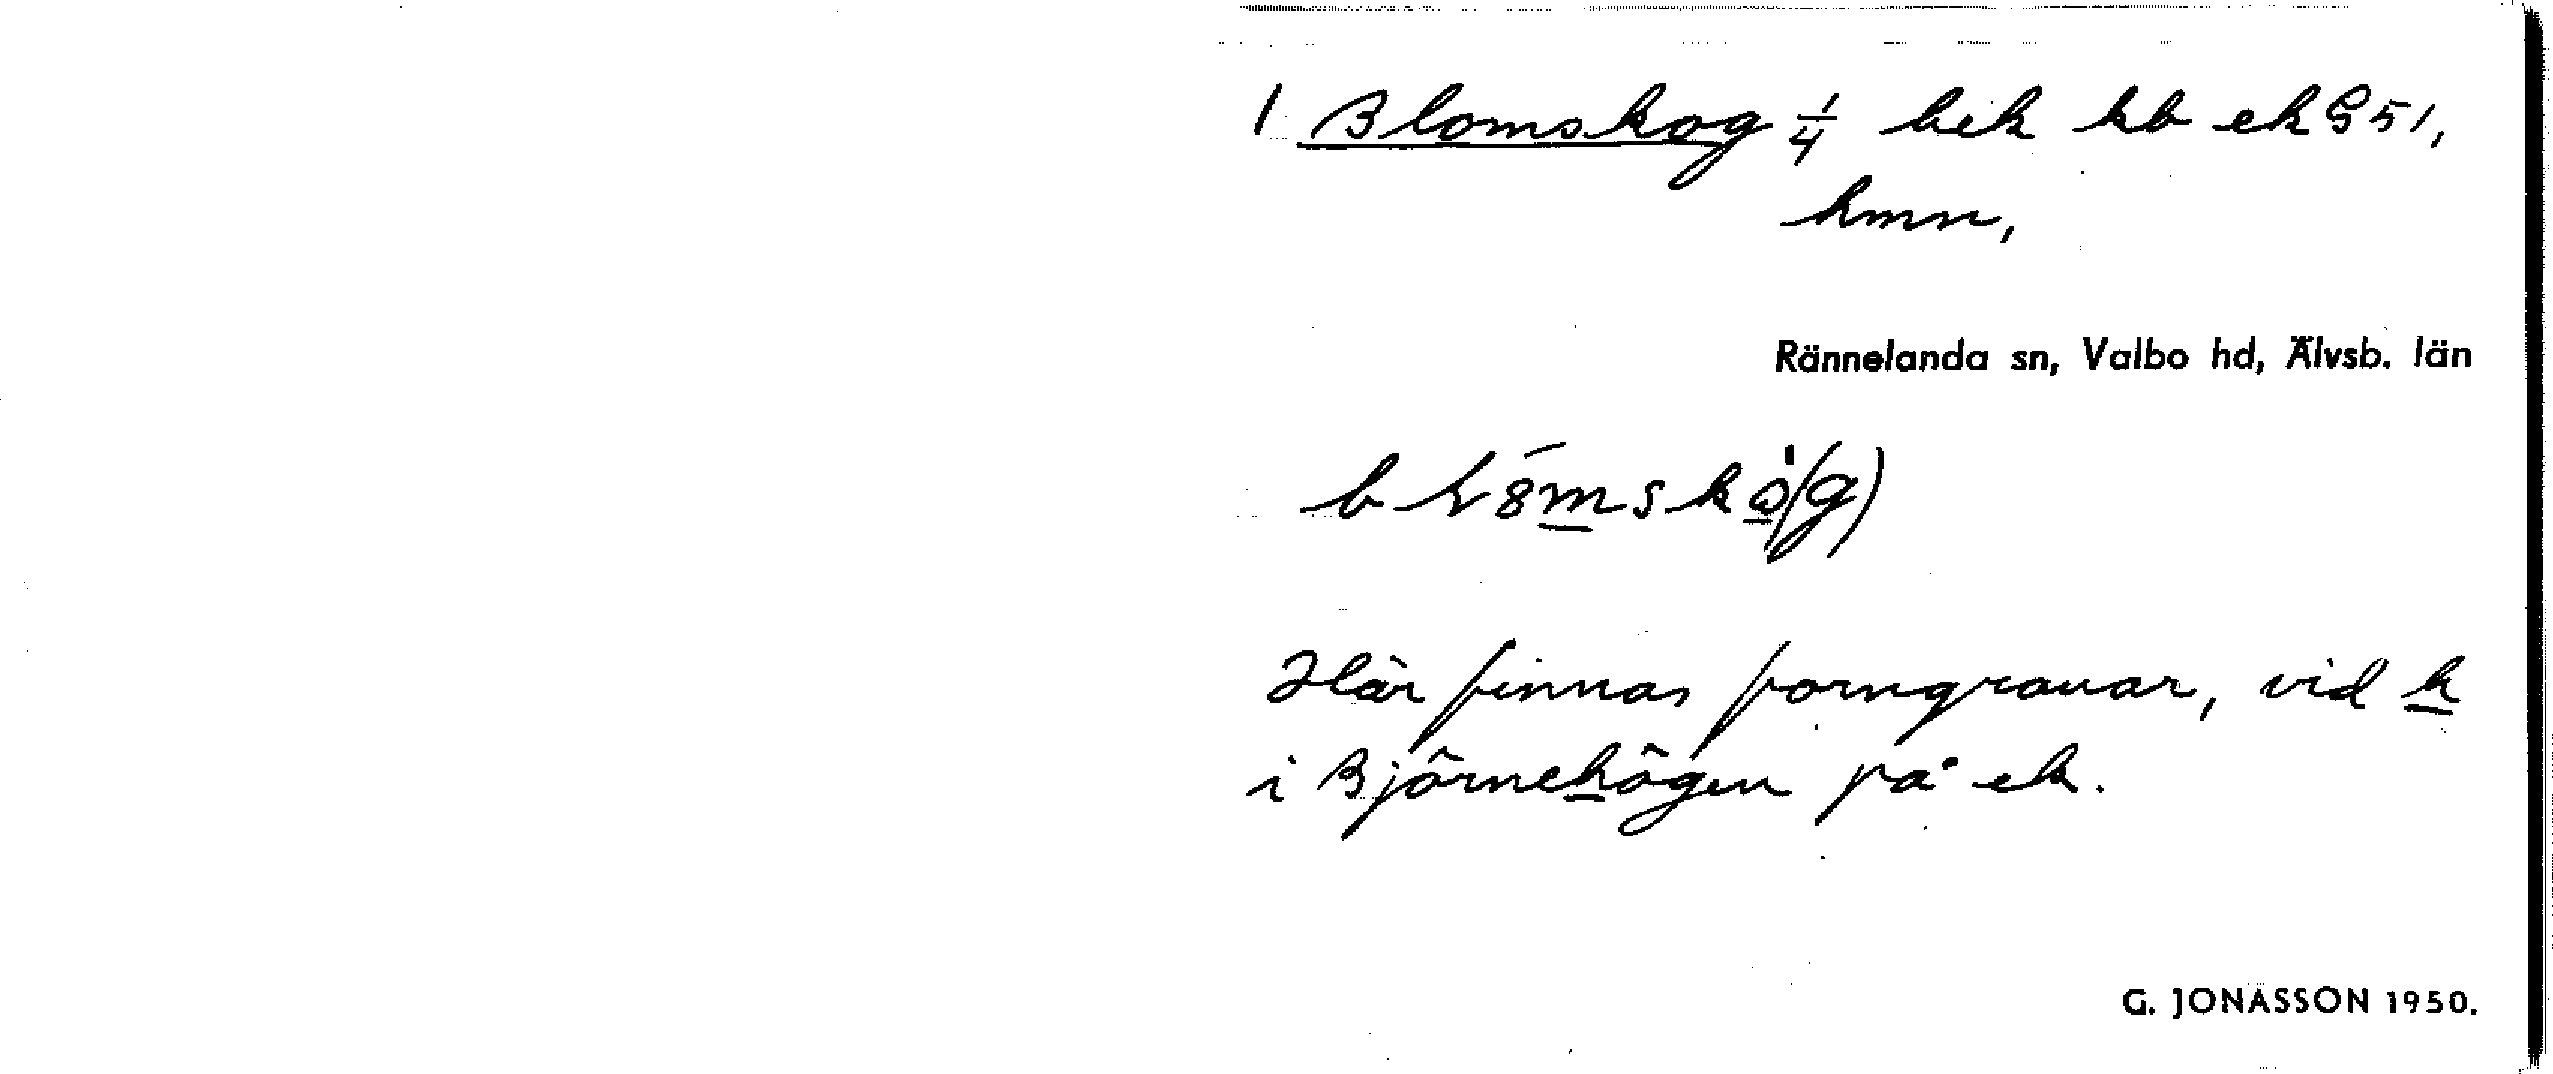 1 Blomskog 1/4 bek kb ek 951,
hmn,
Rännelanda sn, Valbo hd, Älvsb. län
Här finnas forngravar, vid h
i Björnehögen på ek.
G. JONASSON 1950.